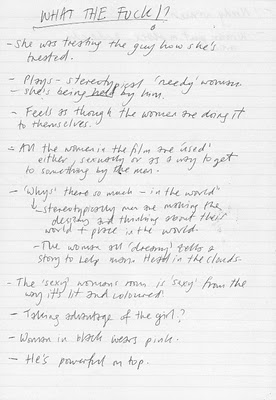 WHAT THE FUCK!?
- She was treating the guy how she's
treated.
- Plays - stereotypical 'needy' woman.
- she's being held by him.
- Feels as though the women are doing it
to themselves.
- All the women in the film are 'used'
either sexually or as a way to get
to something by the men.
- 'Whys' there so much - in the world"
↳ stereotypically men are making the
and thinking about their
world + place in the world.
- The woman all 'dreamy' tells a
story to help man. Head in the clouds.
- The 'sexy' womans room is 'sexy' from the
way it's lit and coloured.
- Taking advantage of the girl?
- Woman in black wears pink.
- He's powerful on top.